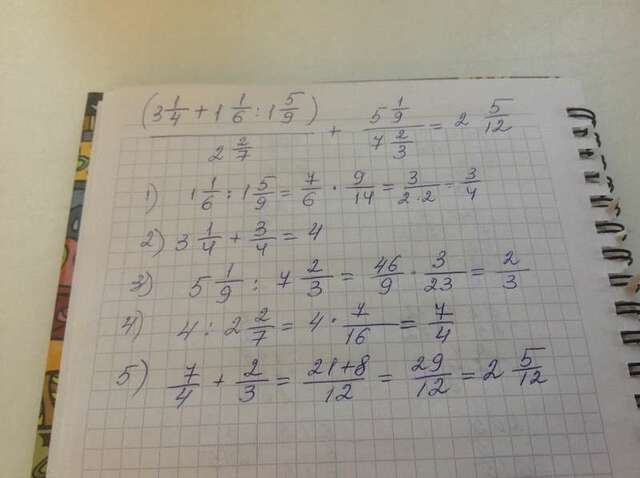 (3 1/4 + 1 1/6 : 1 5/9) / 2 2/7 + 5 1/9 / 7 2/3 = 2 5/12
1) 1 1/6 : 1 5/9 = 7/6 · 9/14 = 3/2·2 = 3/4
2) 3 1/4 + 3/4 = 4
3) 5 1/9 : 7 2/3 = 46/9 · 3/23 = 2/3
4) 4 : 2 2/7 = 4 · 7/16 = 7/4
5) 7/4 + 2/3 = 21+8/12 = 29/12 = 2 5/12